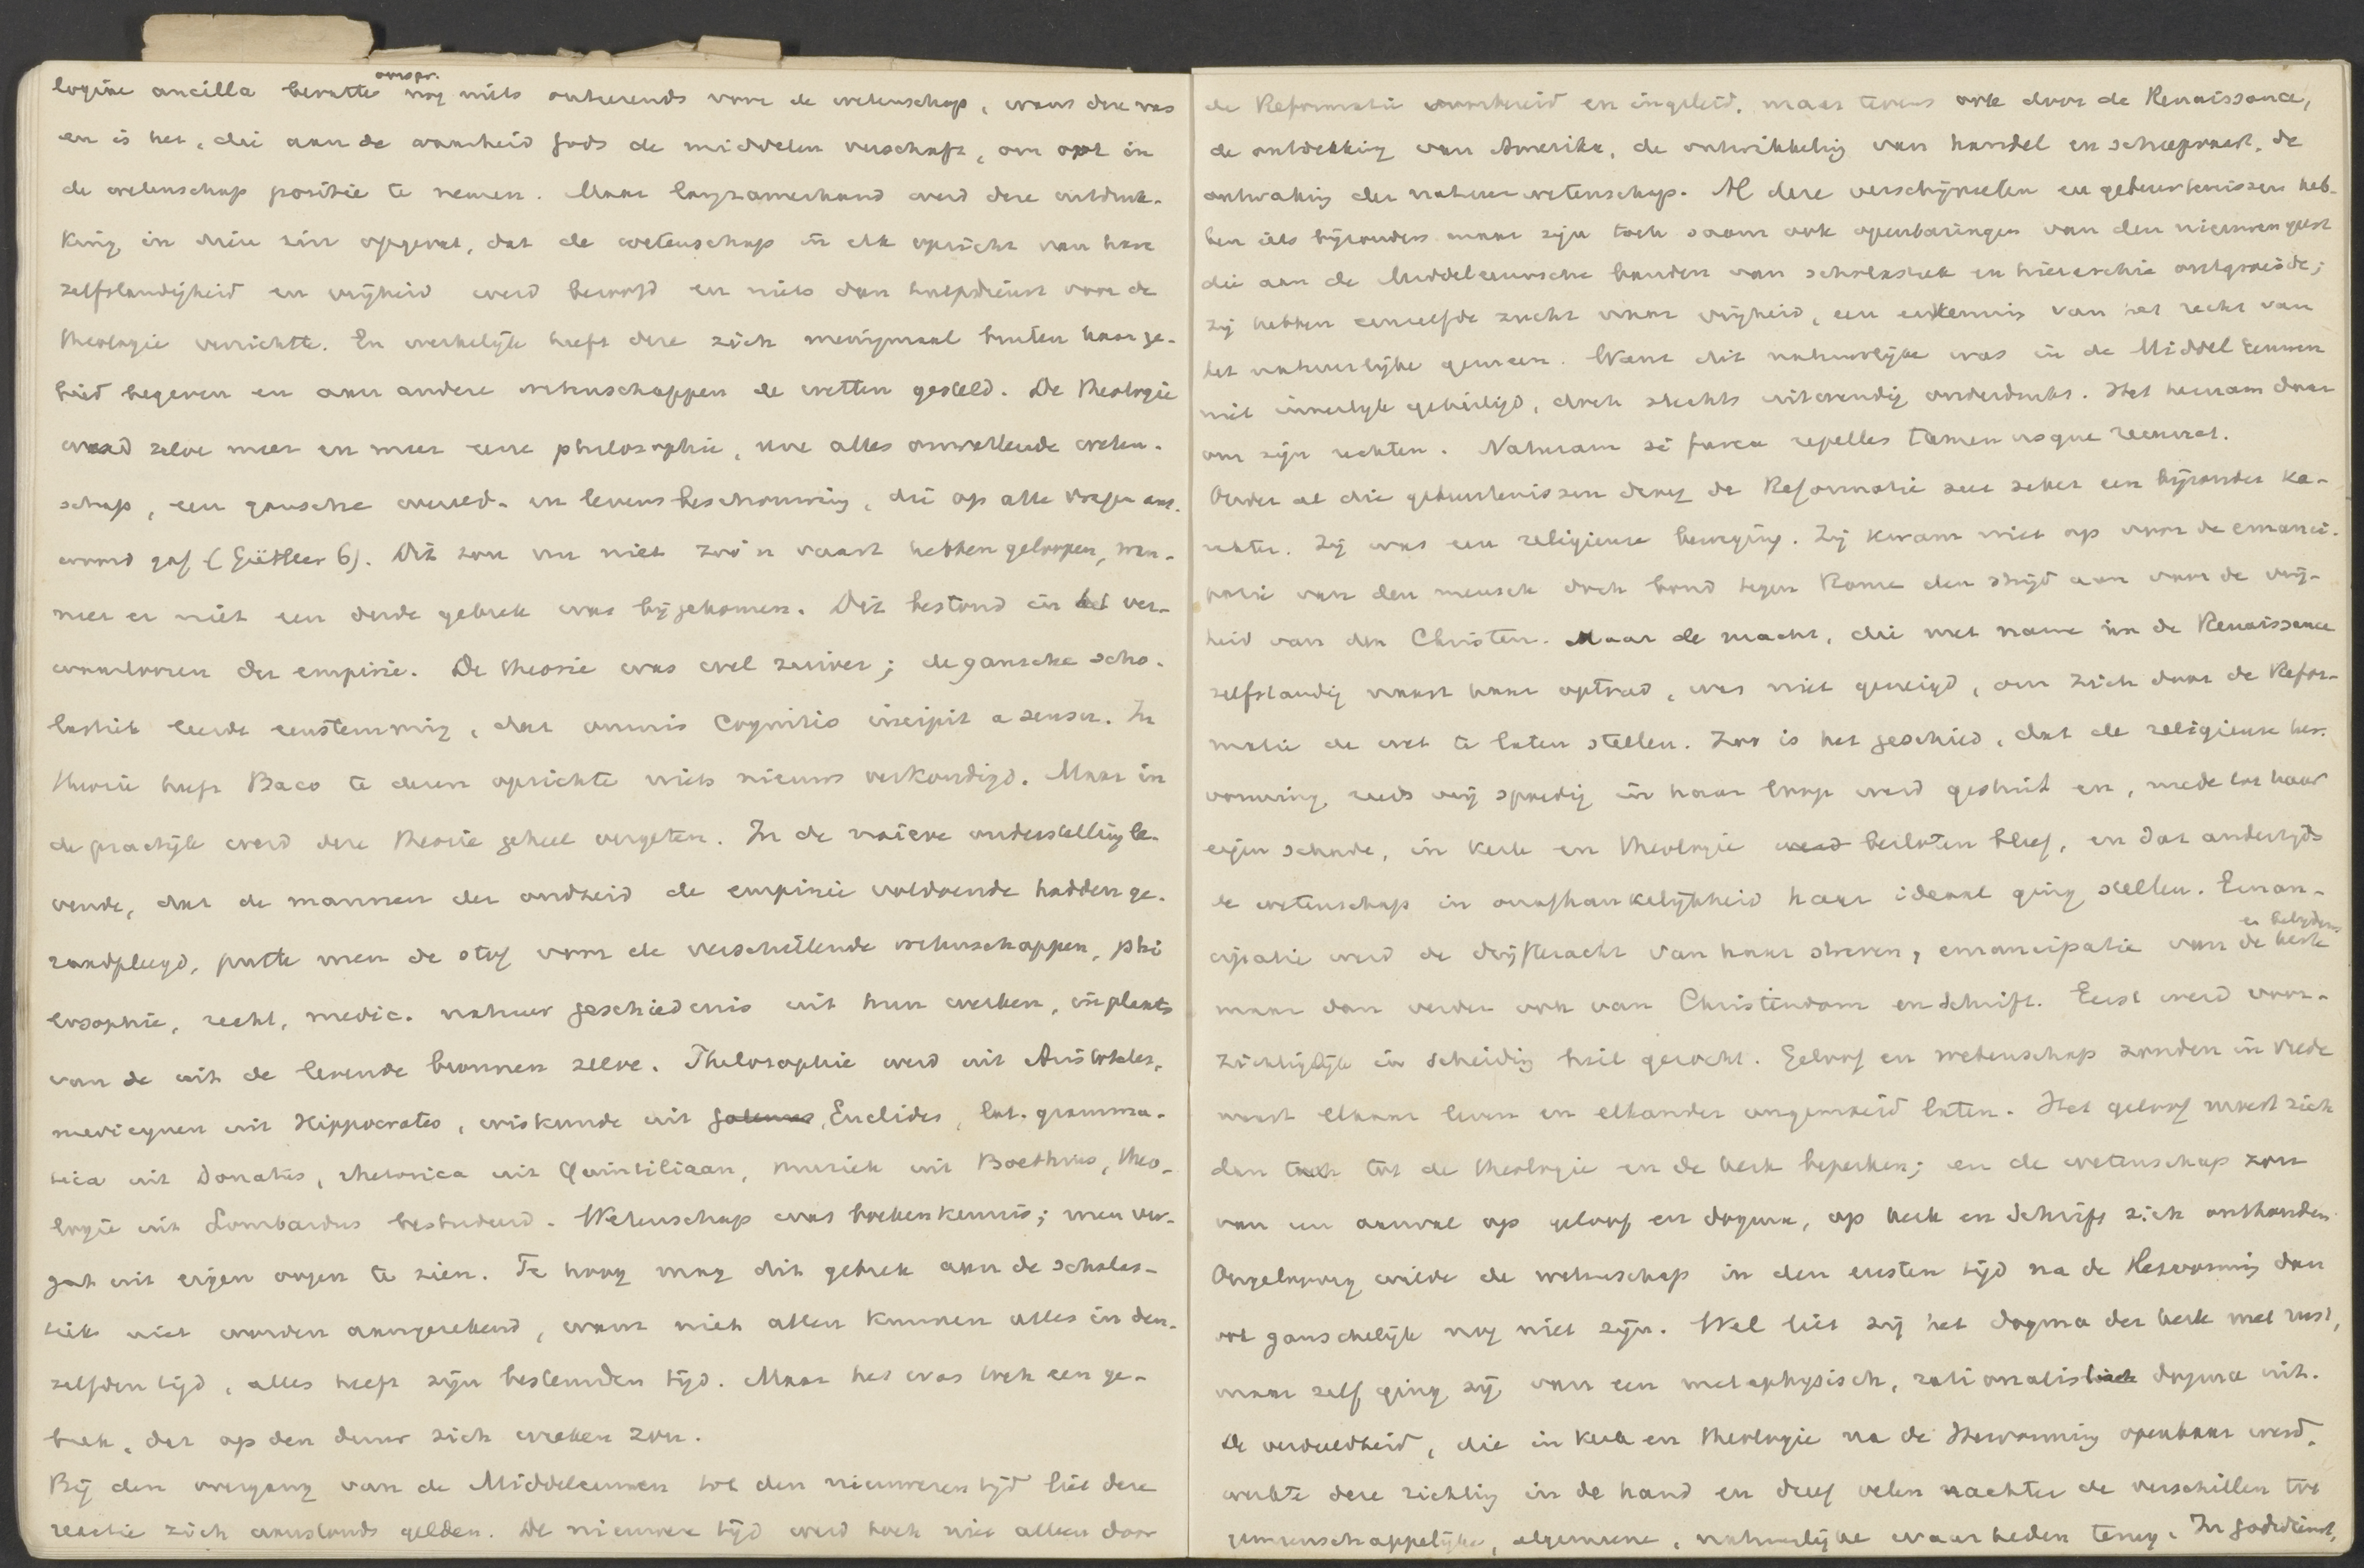 logiae ancilla bevatte oorspr. nog niets onteerends voor de wetenschap, want deze was
en is het, die aan de waarheid Gods de middelen verschaft, om ook in
de wetenschap positie te nemen. Maar langzamerhand werd deze uitdruk-
king in dien zin opgevat, dat de wetenschap in elk opzicht van hare
zelfstandigheid en vrijheid werd beroofd en niets dan hulpdienst voor de
theologie verrichtte. En werkelijk heeft deze zich menigmaal buiten haar ge-
bied begeven en aan andere wetenschappen de wetten gesteld. De theologie
werd zelve meer en meer eene philosophie, eene alles omvattende weten-
schap, een gansche wereld- en levensbeschouwing, die op alle vragen ant-
woord gaf (Güttler 6). Dit zou nu niet zoo'n vaart hebben geloopen, wan-
neer er niet een derde gebrek was bijgekomen. Dit bestond in het ver-
waarloozen der empirie. De theorie was wel zuiver; de gansche scho-
lastiek leerde eenstemmig, dat omnis cognitio incipit a sensu. In
theorie heeft Baco te dezen opzichte niets nieuws verkondigd. Maar in
de practijk werd deze theorie geheel vergeten. In de naieve onderstelling le-
vende, dat de mannen der oudheid de empirie voldoende hadden ge-
raadpleegd, putte men de stof voor de verschillende wetenschappen, phi
losophie, recht, medic. natuur geschiedenis uit hun werken, in plaats
van de uit de levende bronnen zelve. Philosophie werd uit Aristoteles,
medicynen uit Hippocrates, wiskunde uit Galenus, Euclides, lat. gramma-
tica uit Donatus, rhetorica uit Quintiliaan, muziek uit Boethius, theo-
logie uit Lombardus bestudeerd. Wetenschap was boekenkennis; men ver-
gat uit eigen oogen te zien. Te hoog mag dit gebrek aan de scholas-
tiek niet worden aangerekend, want niet allen kunnen alles in den-
zelfden tijd, alles heeft zijn bestemden tijd. Maar het was toch een ge-
brek, dat op den duur zich wreken zou.
Bij den overgang van de Middeleeuwen tot den nieuweren tijd liet deze
reactie zich aanstonds gelden. De nieuwere tijd werd toch niet alleen door
de Reformatie voorbereid en ingeleid, maar tevens ook door de Renaissance,
de ontdekking van Amerika, de ontwikkeling van handel en scheepvaart, de
ontwaking der natuurwetenschap. Al deze verschijnselen en gebeurtenissen heb-
ben iets bijzonders maar zijn toch saam ook openbaringen van den nieuwen geest
die aan de Middeleeuwsche banden van scholastiek en hierarchie ontgroeide;
zij hebben eenzelfde zucht naar vrijheid, een erkennis van het recht van
het natuurlijke gemeen. Want dit natuurlijke was in de Middel Eeuwen
niet innerlijk geheiligd, doch slechts uitwendig onderdrukt. Het hernam daar
om zijn rechten. Naturam si furca repelles tamen usque recurret.
Onder al die gebeurtenissen droeg de Reformatie zeer zeker een bijzonder ka-
rakter. Zij was een religieuse beweging. Zij kwam niet op voor de emanci-
patie van den mensch doch bond tegen Rome den strijd aan voor de vrij-
heid van den Christen. Maar de macht, die met name in de Renaissance
zelfstandig naast haar optrad, was niet geneigd, om zich door de Refor-
matie de wet te laten stellen. Zoo is het geschied, dat de religieuse her-
vorming reeds vrij spoedig in haar loop werd gestuit en, mede tot haar
eigen schade, in kerk en theologie werd besloten bleef, en dat anderzijds
de wetenschap in onafhankelijkheid haar ideaal ging stellen. Eman-
cipatie werd de drijfkracht van haar streven, emancipatie van de kerk en belijdenis
maar dan verder ook van Christendom en Schrift. Eerst werd voor-
zichtiglijk in scheiding heil gezocht. Geloof en wetenschap zouden in vrede
naast elkaar leven en elkander ongemoeid laten. Het geloof moest zich
dan tot de theologie en de kerk beperken; en de wetenschap zou
van een aanval op geloof en dogma, op kerk en Schrift zich onthouden.
Ongeloovig wilde de wetenschap in den eersten tijd na de Hervorming dan
ook ganschelijk nog niet zijn. Wel liet zij het dogma der kerk met rust,
maar zelf ging zij van een metaphysisch, rationalistisch dogma uit.
De verdeeldheid, die in kerk en theologie na de Hervorming openbaar werd,
werkte deze richting in de hand en dreef velen achter de verschillen tot
gemeenschappelijke, algemeene, natuurlijke waarheden terug. In godsdienst,